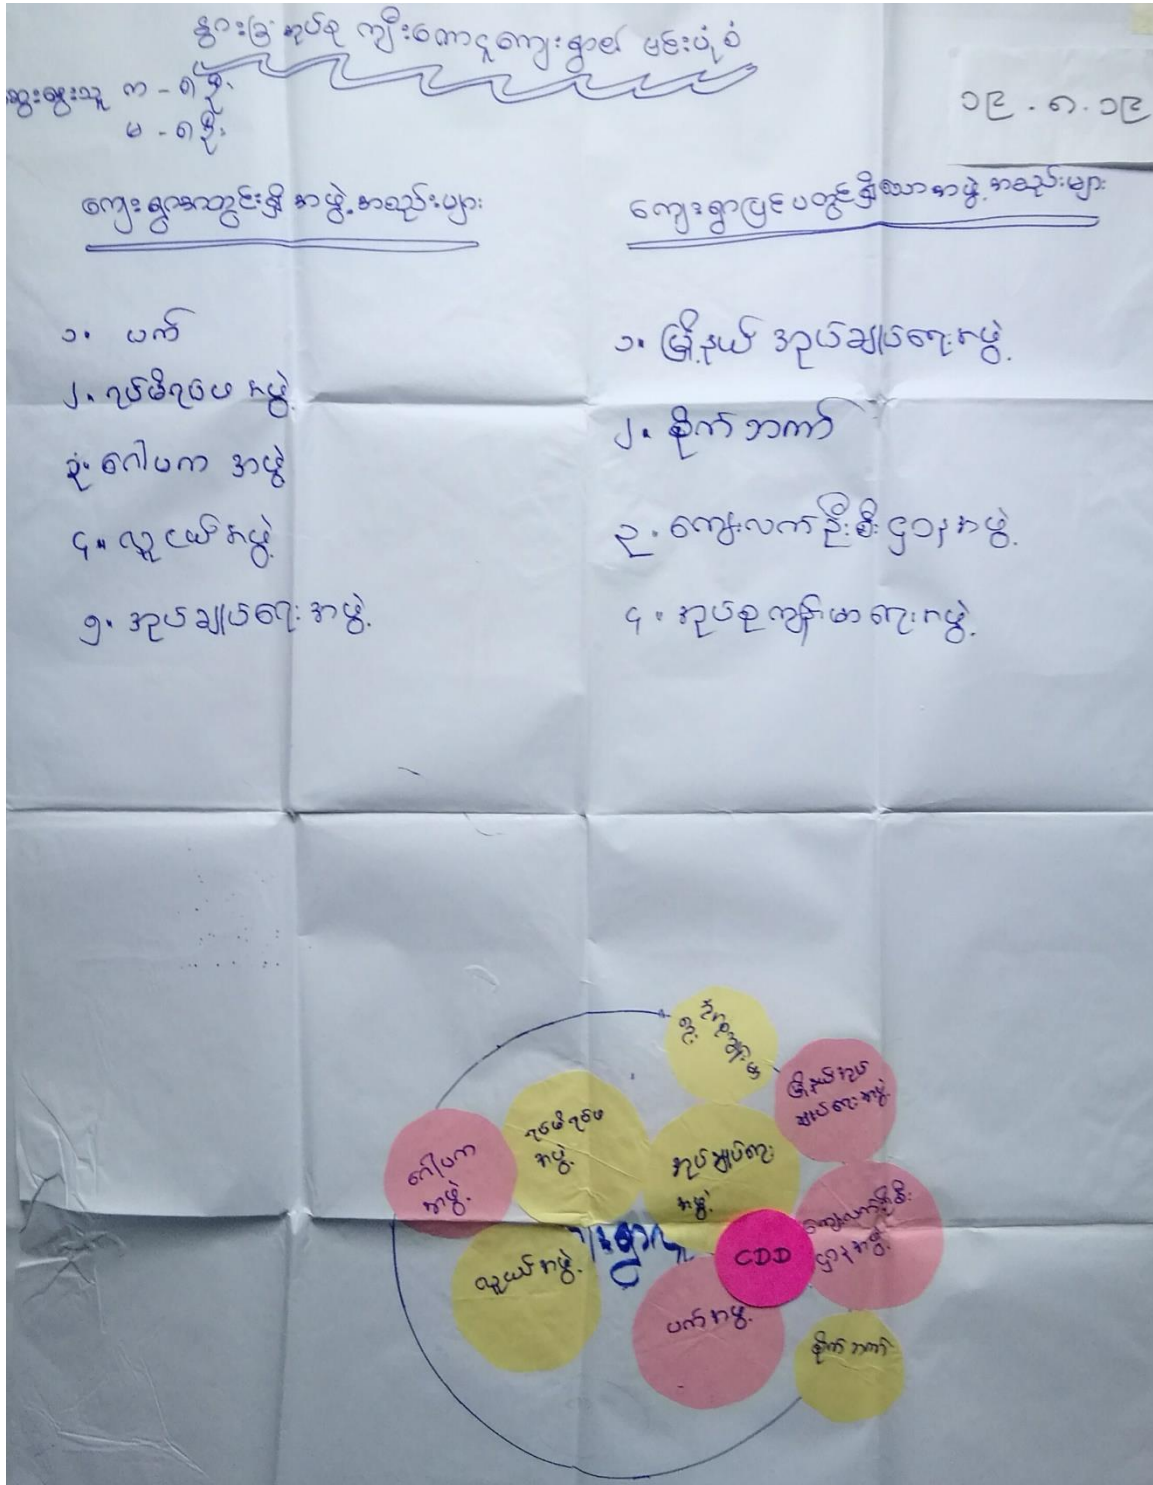 နွားခြံအုပ်စု ကျီးတောငူကျေးရွာ၏ မင်းပုံစံ
ဆွေးနွေးသူ က - ၈ ဦး
မ - ၈ ဦး
၁၉.၈.၁၉
ကျေးရွာအတွင်းရှိ အဖွဲ့အစည်းများ
၁။ ပက်
၂။ ရပ်မိရပ်ဖ အဖွဲ့
၃။ ဂေါပက အဖွဲ့
၄။ လူငယ်အဖွဲ့
၅။ အုပ်ချုပ်ရေး အဖွဲ့
ကျေးရွာပြင်ပတွင်ရှိသောအဖွဲ့အစည်းများ
၁။ မြို့နယ် အုပ်ချုပ်ရေးအဖွဲ့
၂။ စိုက်ဘဏ်
၃။ ကျေးလက်ဦးစီးဌာနအဖွဲ့
၄။ အုပ်စုကျန်းမာရေးအဖွဲ့
မြို့နယ်အုပ်
ချုပ်ရေးအဖွဲ့
ရပ်မိရပ်ဖ
အဖွဲ့
ဂေါပက
အဖွဲ့
အုပ်ချုပ်ရေး
အဖွဲ့
ကျေးလက်ဦးစီး
ဌာနအဖွဲ့
CDD
လူငယ်အဖွဲ့
ပက်အဖွဲ့
စိုက်ဘဏ်